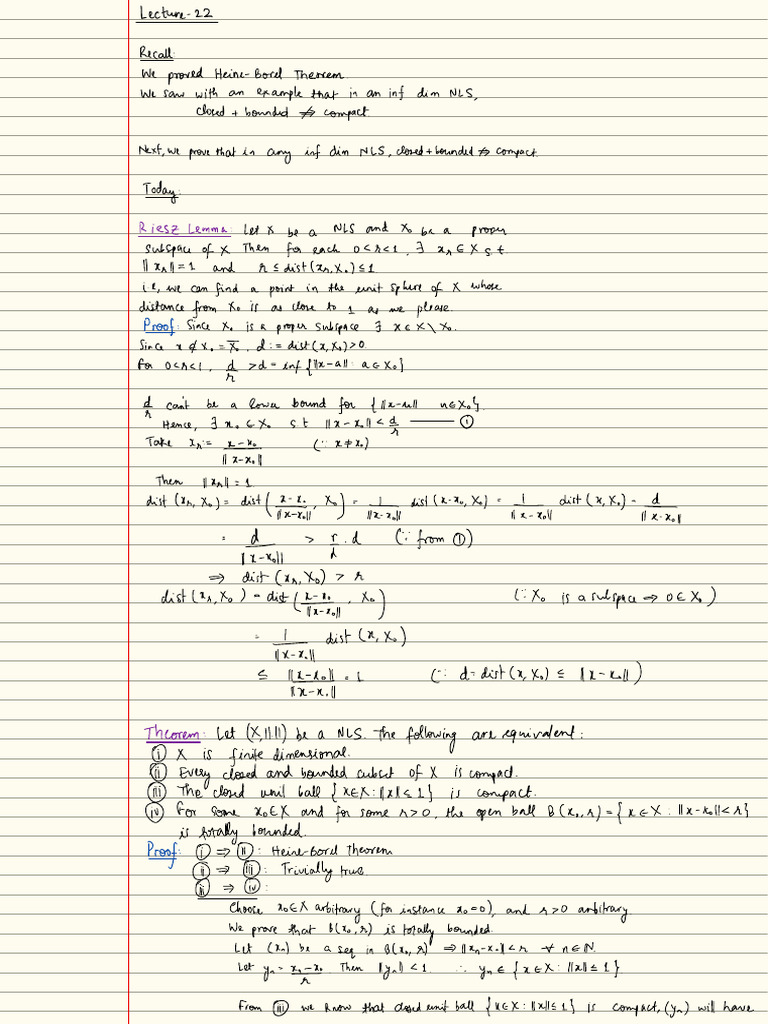 Lecture-22
Recall:
We proved Heine-Borel Theorem
We saw with an example that in an inf dim NLS,
closed + bounded ⇏ compact
Next, we prove that in any inf dim NLS, closed+bounded ⇏ compact
Today:
Riesz Lemma: Let X be a NLS and X₀ be a proper
subspace of X Then for each 0<r<1, ∃ xᵣ ∈ X s.t.
||xᵣ||=1 and r ≤ dist(xᵣ, X₀) ≤ 1
i.e, we can find a point in the unit sphere of X whose
distance from X₀ is as close to 1 as we please.
Proof: Since X₀ is a proper subspace ∃ x∈X∖X₀.
Since x ∉ X₀ = X̅₀, d := dist(x,X₀)>0.
For 0<r<1, d/r > d = inf {||x-a|| : a∈X₀}
d/r can't be a lower bound for {||x-u|| u∈X₀}.
Hence, ∃ x₀ ∈ X₀ s.t ||x-x₀|| < d/r —— ①
Take xᵣ := (x-x₀)/||x-x₀|| (∵ x≠x₀)
Then ||xᵣ||=1.
dist(xᵣ, X₀) = dist((x-x₀)/||x-x₀||, X₀) = 1/||x-x₀|| dist(x-x₀, X₀) = 1/||x-x₀|| dist(x, X₀) = d/||x-x₀||
= d/||x-x₀|| > r/d . d (∵ from ①)
⇒ dist(xᵣ, X₀) > r
dist(xᵣ, X₀) = dist((x-x₀)/||x-x₀||, X₀) (∵ X₀ is a subspace ⇒ 0∈X₀)
= 1/||x-x₀|| dist(x, X₀)
≤ ||x-x₀||/||x-x₀|| = 1 (∵ d=dist(x, X₀) ≤ ||x-x₀||)
Theorem: Let (X,||.||) be a NLS. The following are equivalent:
(i) X is finite dimensional.
(ii) Every closed and bounded subset of X is compact.
(iii) The closed unit ball {x∈X : ||x||≤1} is compact.
(iv) For some x₀∈X and for some r>0, the open ball B(x₀,r)={x∈X : ||x-x₀||<r}
is totally bounded.
Proof: (i) ⇒ (ii): Heine-Borel Theorem
(ii) ⇒ (iii): Trivially true.
(iii) ⇒ (iv):
Choose x₀∈X arbitrary (for instance x₀=0), and r>0 arbitrary.
We prove that B(x₀,r) is totally bounded.
Let (xₙ) be a seq in B(x₀,r) ⇒ ||xₙ-x₀||<r ∀ n∈ℕ.
Let yₙ = (xₙ-x₀)/r Then ||yₙ||<1 ∴ yₙ ∈ {x∈X : ||x||≤1}
From (iii) we know that closed unit ball {x∈X : ||x||≤1} is compact, (yₙ) will have